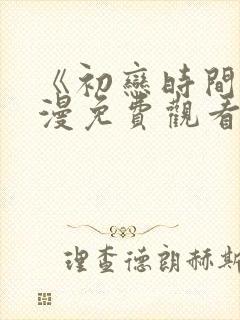 《初戀時間
漫免費觀看
理查德朗赫斯